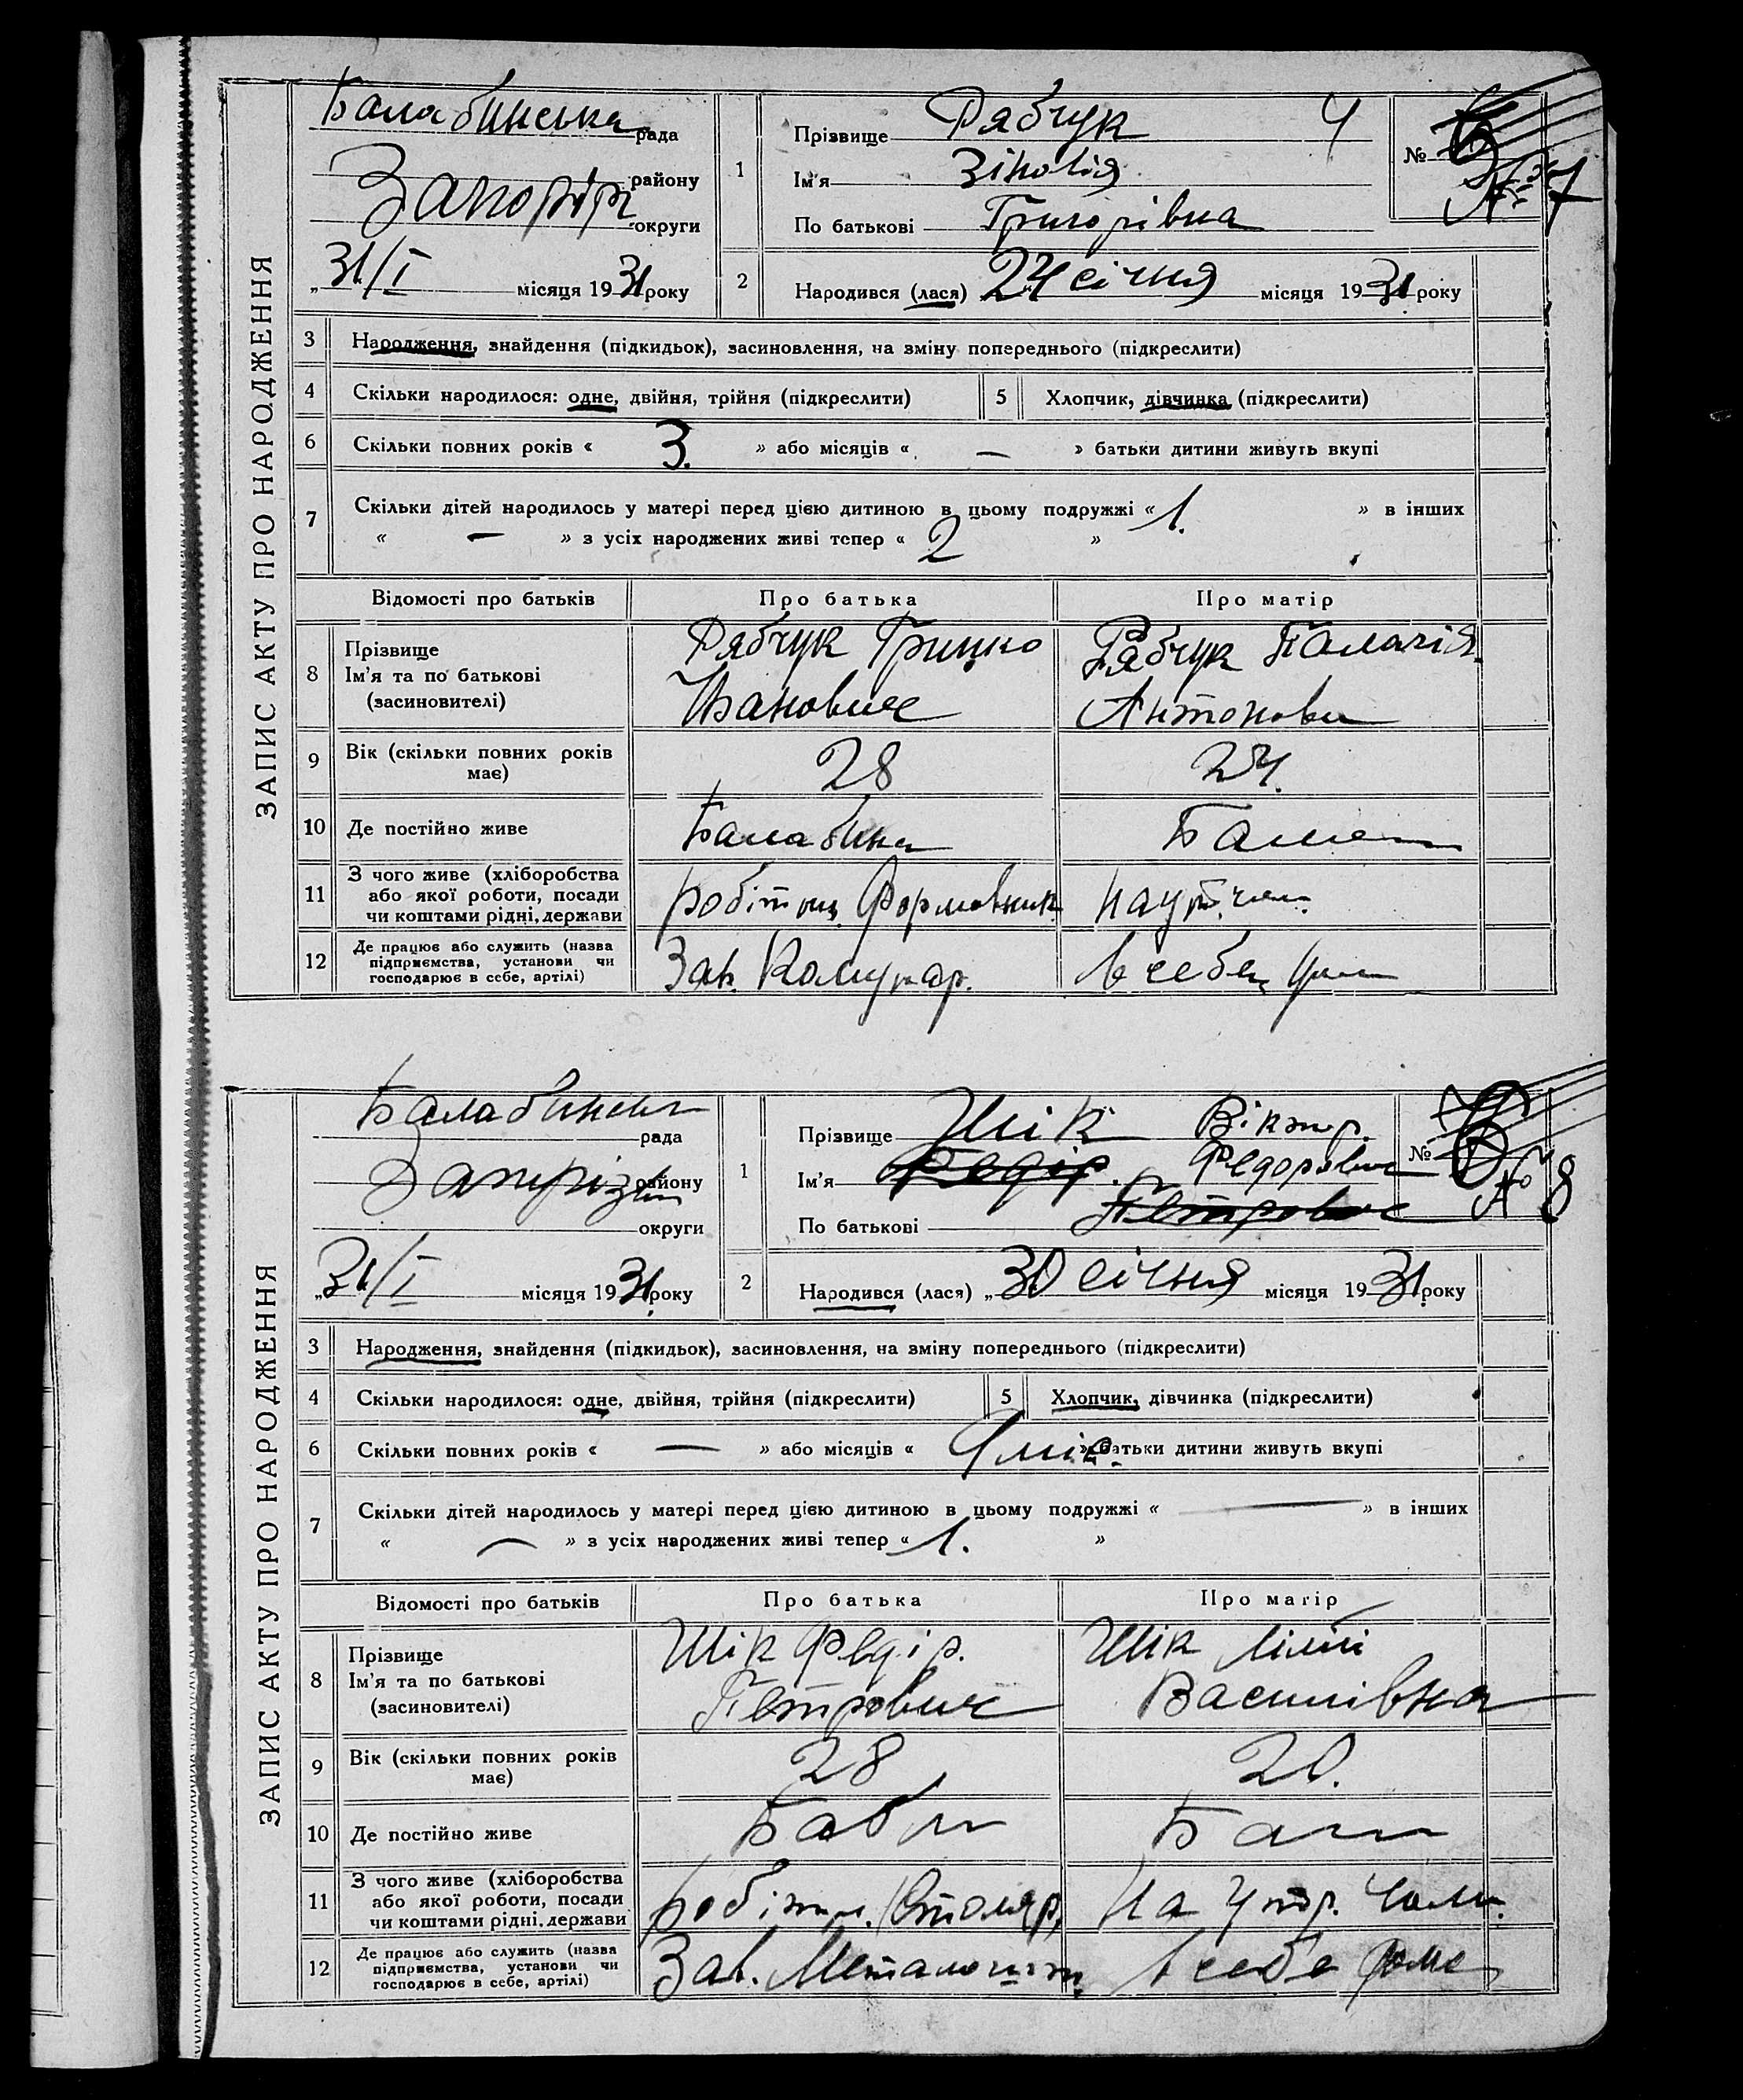 ЗАПИС АКТУ ПРО НАРОДЖЕННЯ
Балабинська рада
району
Запоріз округи
„31/I місяця 1931 року
1
Прізвище Рябчук 4
Ім'я Зіновія
По батькові Григорівна
№ №7
2
Народився (лася) „24 січня місяця 1931 року
3 Народження, знайдення (підкидьок), засиновлення, на зміну попереднього (підкреслити)
4 Скільки народилося: одне, двійня, трійня (підкреслити) 5 Хлопчик, дівчинка (підкреслити)
6 Скільки повних років « 3. » або місяців « — » батьки дитини живуть вкупі
7 Скільки дітей народилось у матері перед цією дитиною в цьому подружжі « 1. » в інших
« — » з усіх народжених живі тепер « 2 »
Відомості про батьків Про батька Про матір
8 Прізвище Ім'я та по батькові (засновителі) Рябчук Грицко Рябчук
Іванович Антоновн
9 Вік (скільки повних років має) 28 24.
10 Де постійно живе Балабина Бала
11 З чого живе (хліборобства або якої роботи, посади чи коштами рідні, держави робітник Формовник на утр. чол.
12 Де працює або служить (назва підприємства, установи чи господарює в себе, артілі) Зав. Комунар. в себе дома
ЗАПИС АКТУ ПРО НАРОДЖЕННЯ
Балабинськ рада
Запоріз району
округи
„31/I місяця 1931 року
1
Прізвище Шік Віктор.
Ім'я Федір. Федорович
По батькові Петрович
№ №8
2
Народився (лася) „30 січня місяця 1931 року
3 Народження, знайдення (підкидьок), засиновлення, на зміну попереднього (підкреслити)
4 Скільки народилося: одне, двійня, трійня (підкреслити) 5 Хлопчик, дівчинка (підкреслити)
6 Скільки повних років « — » або місяців « 9 міс. » батьки дитини живуть вкупі
7 Скільки дітей народилось у матері перед цією дитиною в цьому подружжі « — » в інших
« — » з усіх народжених живі тепер « 1. »
Відомості про батьків Про батька Про матір
8 Прізвище Ім'я та по батькові (засиновителі) Шік Федір. Шік
Петрович Василівна
9 Вік (скільки повних років має) 28 20.
10 Де постійно живе
11 З чого живе (хліборобства або якої роботи, посади чи коштами рідні, держави робітн. (Столяр) На утр. чол.
12 Де працює або служить (назва підприємства, установи чи господарює в себе, артілі) Зав. в себе дома